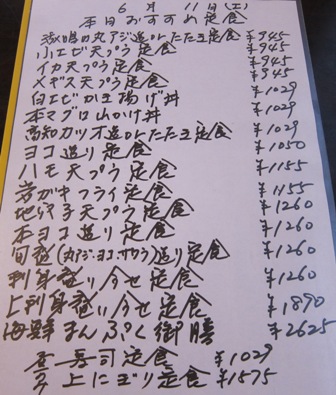 6月11日(土)
本日おすすめ定食
激鳴の丸アジ造りorたたき定食 ¥945
小エビ天プラ定食 ¥945
イカ天プラ定食 ¥945
メギス天プラ定食 ¥945
白エビかき揚げ丼 ¥1029
本マグロ山かけ丼 ¥1029
高知カツオ造りorたたき定食 ¥1029
ヨコ造り定食 ¥1050
ハモ天プラ定食 ¥1155
岩ガキフライ定食 ¥1155
地穴子天プラ定食 ¥1260
本ヨコ造り定食 ¥1260
旬盛(丸アジ、ヨコ、サワラ)造り定食 ¥1260
刺身盛り合せ定食 ¥1260
上刺身盛り合せ定食 ¥1890
海鮮まんぷく御膳 ¥2625
寿司定食 ¥1029
上にぎり定食 ¥1575